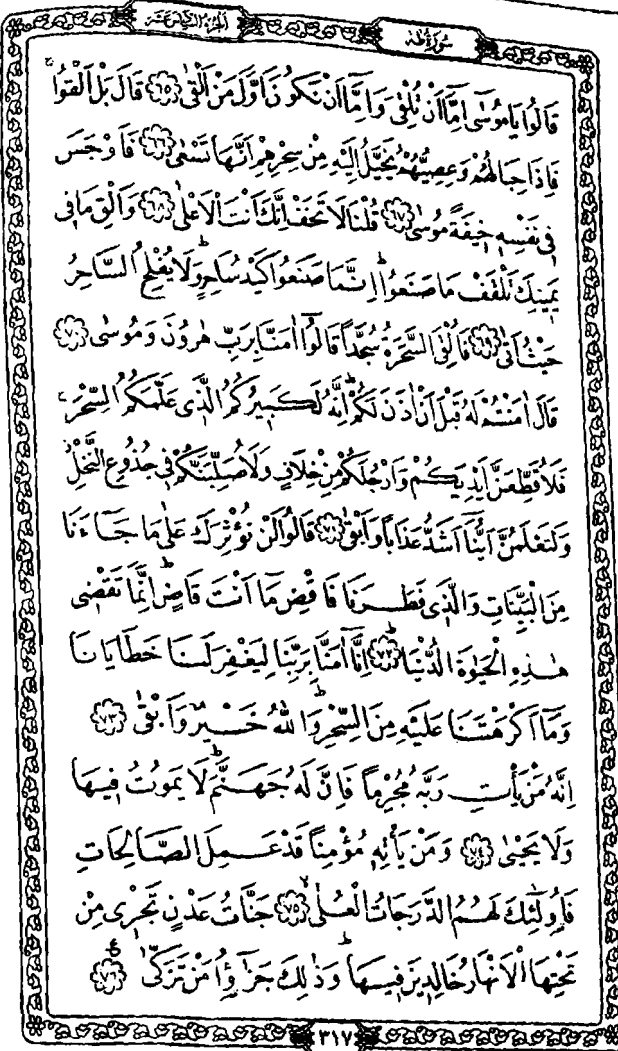 سُورَةُ طٰهٰ
اَلْجُزْءُ السَّادِسَ عَشَرَ
قَالُوا يَا مُوسٰٓى اِمَّٓا اَنْ تُلْقِىَ وَاِمَّٓا اَنْ نَكُونَ اَوَّلَ مَنْ اَلْقٰى ﴿٦٥﴾ قَالَ بَلْ اَلْقُواۚ
فَاِذَا حِبَالُهُمْ وَعِصِيُّهُمْ يُخَيَّلُ اِلَيْهِ مِنْ سِحْرِهِمْ اَنَّهَا تَسْعٰى ﴿٦٦﴾ فَاَوْجَسَ
فِى نَفْسِهٖ خِيفَةً مُوسٰى ﴿٦٧﴾ قُلْنَا لَا تَخَفْ اِنَّكَ اَنْتَ الْاَعْلٰى ﴿٦٨﴾ وَاَلْقِ مَا فِى
يَمِينِكَ تَلْقَفْ مَا صَنَعُواۜ اِنَّمَا صَنَعُوا كَيْدُ سَاحِرٍۜ وَلَا يُفْلِحُ السَّاحِرُ
حَيْثُ اَتٰى ﴿٦٩﴾ فَاُلْقِىَ السَّحَرَةُ سُجَّدًا قَالُٓوا اٰمَنَّا بِرَبِّ هٰرُونَ وَمُوسٰى ﴿٧٠﴾
قَالَ اٰمَنْتُمْ لَهُ قَبْلَ اَنْ اٰذَنَ لَكُمْۜ اِنَّهُ لَكَبِيرُكُمُ الَّذِى عَلَّمَكُمُ السِّحْرَۚ
فَلَاُقَطِّعَنَّ اَيْدِيَكُمْ وَاَرْجُلَكُمْ مِنْ خِلَافٍ وَلَاُصَلِّبَنَّكُمْ فِى جُذُوعِ النَّخْلِۘ
وَلَتَعْلَمُنَّ اَيُّنَٓا اَشَدُّ عَذَابًا وَاَبْقٰى ﴿٧١﴾ قَالُوا لَنْ نُؤْثِرَكَ عَلٰى مَا جَٓاءَنَا
مِنَ الْبَيِّنَاتِ وَالَّذِى فَطَرَنَا فَاقْضِ مَٓا اَنْتَ قَاضٍۜ اِنَّمَا تَقْضِى
هٰذِهِ الْحَيٰوةَ الدُّنْيَاۜ ﴿٧٢﴾ اِنَّٓا اٰمَنَّا بِرَبِّنَا لِيَغْفِرَ لَنَا خَطَايَانَا
وَمَٓا اَكْرَهْتَنَا عَلَيْهِ مِنَ السِّحْرِۜ وَاللّٰهُ خَيْرٌ وَاَبْقٰى ﴿٧٣﴾
اِنَّهُ مَنْ يَأْتِ رَبَّهُ مُجْرِمًا فَاِنَّ لَهُ جَهَنَّمَۜ لَا يَمُوتُ فِيهَا
وَلَا يَحْيٰى ﴿٧٤﴾ وَمَنْ يَأْتِهٖ مُؤْمِنًا قَدْ عَمِلَ الصَّالِحَاتِ
فَاُو۬لٰٓئِكَ لَهُمُ الدَّرَجَاتُ الْعُلٰىۙ ﴿٧٥﴾ جَنَّاتُ عَدْنٍ تَجْرِى مِنْ
تَحْتِهَا الْاَنْهَارُ خَالِدِينَ فِيهَاۜ وَذٰلِكَ جَزٰٓؤُا مَنْ تَزَكّٰى ﴿٧٦﴾ ع
٣١٧